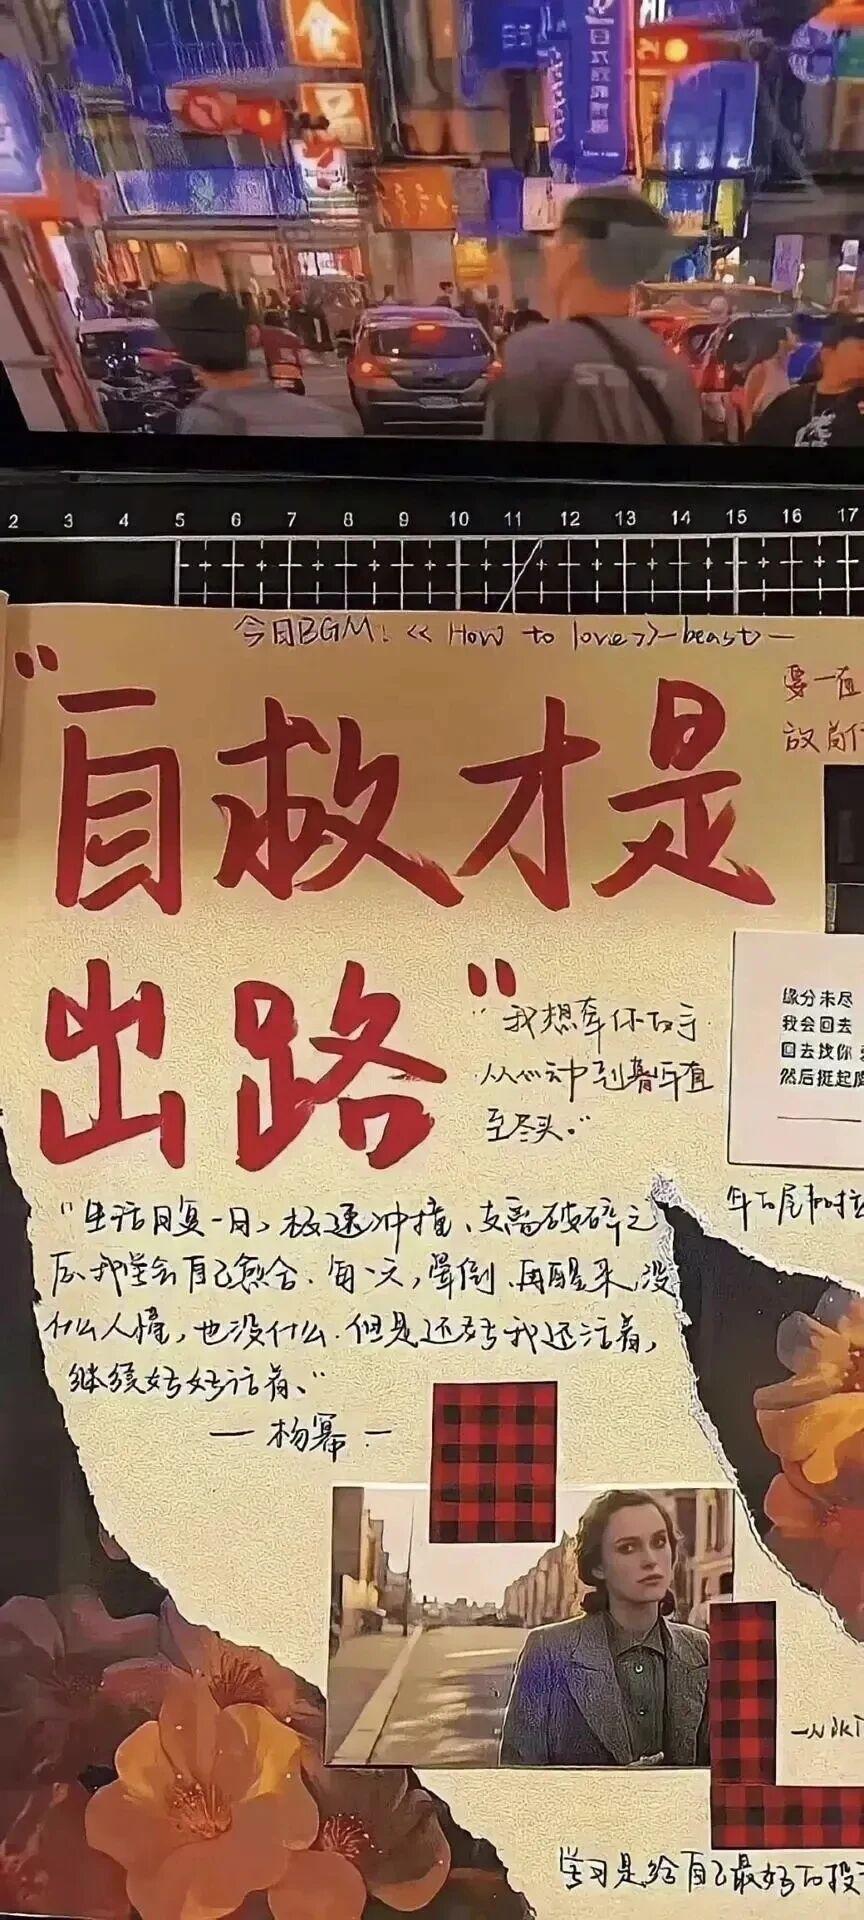 金
2 3 4 5 6 7 8 9 10 11 12 13 14 15 16 17
今日BGM:《How to love》—beast—
"自救才是
出路"
要一直
放
"我想牵你的手
从心动到暮年直
至尽头。"
缘分未尽
我会回去
回去找你
然后挺起
"生活日复一日、极速冲撞、支离破碎之
后、我学会自己愈合、每一天,晕倒、再醒来、没
什么人懂,也没什么.但是还好我还活着,
继续好好活着、"
—杨幂—
年的尾和时
学习是给自己最好的投